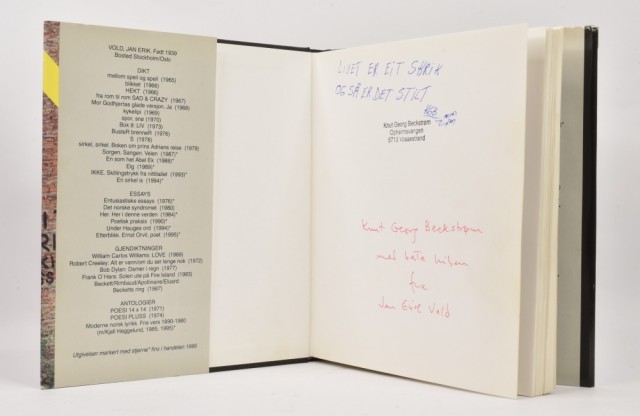 VOLD, JAN ERIK. Født 1939
Bosted Stockholm/Oslo
DIKT
mellom speil og speil (1965)
blikket (1966)
HEKT (1966)
fra rom til rom SAD & CRAZY (1967)
Mor Godhjertas glade versjon. Ja (1968)
kykelipi (1969)
spor, snø (1970)
Bok 8: LIV (1973)
BusteR brenneR (1976)
S (1978)
sirkel, sirkel. Boken om prins Adrians reise (1979)
Sorgen. Sangen. Veien (1987)*
En som het Abel Ek (1988)*
Elg (1989)*
IKKE. Skillingstrykk fra nittiåra (1993)*
En sirkel is (1994)*
ESSAYS
Entusiastiske essays (1976)*
Det norske syndromet (1980)
Her. Her i denne verden (1984)*
Poetisk praksis (1990)*
Under Hauges ord (1994)*
Etterblikk. Ernst Orvil, poet (1995)*
GJENDIKTNINGER
William Carlos Williams: LOVE (1969)
Robert Creeley: Alt er vann/om du ser lenge nok (1972)
Bob Dylan: Damer i regn (1977)
Frank O'Hara: Solen ute på Fire Island (1983)
Beckett/Rimbaud/Apollinaire/Eluard:
Becketts ring (1987)
ANTOLOGIER
POESI 14 x 14 (1971)
POESI PLUSS (1974)
Moderne norsk lyrikk. Frie vers 1890-1980
(m/Kjell Heggelund, 1985, 1995)*
Utgivelser markert med stjerne* fins i handelen 1995
LIVET ER EIT SKRIK
OG SÅ ER DET STILT
KGB
Knut Georg Beckstrøm
Opheimsvangen
5713 Vossestrand
Knut Georg Beckstrøm
med beste hilsen
fra
Jan Erik Vold